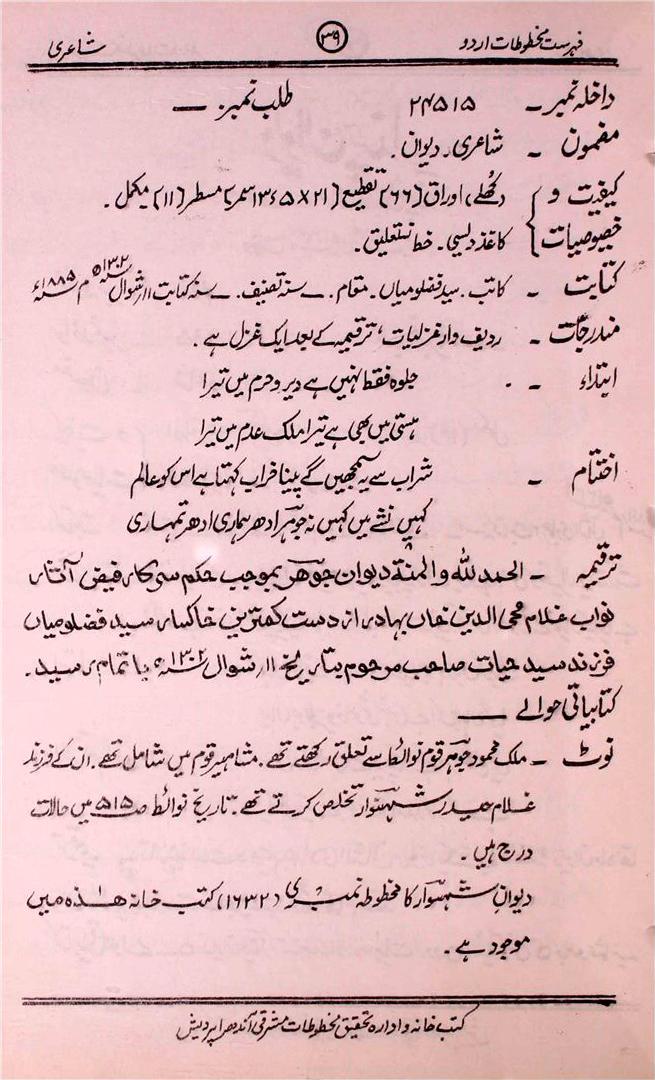 فہرست مخطوطات اردو ۳۹ شاعری
داخلہ نمبر - ۲۴۵۱۵ طلب نمبر: —
مضمون - شاعری۔ دیوان۔
کیفیت و دکھلے، اوراق (۶۶) تقطیع (۲۱×۱۳٫۵ سمر) مسطر (۱۱) مکمل۔
خصوصیات کاغذ دیسی۔ خط نستعلیق۔
کتابت - کاتب۔ سید فضلو میاں۔ مقام۔ — سنہ تصنیف۔ — سنہ کتابت ۱۱؍ شوال ۱۳۰۲ھ م ۱۸۸۵ء
مندرجات - ردیف وار غزلیات، ترقیمہ کے بعد ایک غزل ہے۔
ابتداء - جلوہ فقط نہیں ہے دیر و حرم میں تیرا
ہستی میں بھی ہے تیرا ملک عدم میں تیرا
اختتام - شراب سے یہ سمجھیں گے پینا خراب کہتا ہے اس کو عالم
کہیں نشے میں کہیں نہ جوہر ادھر ہماری ادھر تمہاری
ترقیمہ - الحمد للہ والمنۃ دیوان جوہر بموجب حکم سرکار فیض آثار
نواب غلام محی الدین خاں بہادر از دست کمترین خاکسار سید فضلو میاں
فرزند سید حیات صاحب مرحوم بتاریخ ۱۱؍ شوال ۱۳۰۲ھ باتمام رسید۔
کتابیاتی حوالے —
نوٹ - ملک محمود جوہر قوم نوائط سے تعلق رکھتے تھے۔ مشاہیر قوم میں شامل تھے۔ ان کے فرزند
غلام حیدر شہسوار تخلص کرتے تھے۔ تاریخ نوائط صـ ۵۱۵ میں حالات
درج ہیں۔
دیوانِ شہسوار کا مخطوطہ نمبری (۱۶۳۲) کتب خانہ ھذہ میں
موجود ہے۔
کتب خانہ و ادارہ تحقیق مخطوطات مشرقی آندھرا پردیش